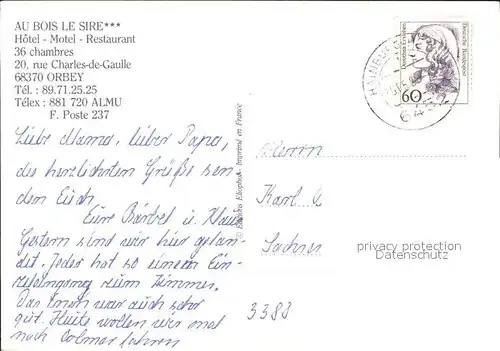 AU BOIS LE SIRE***
Hôtel - Motel - Restaurant
36 chambres
20, rue Charles-de-Gaulle
68370 ORBEY
Tél. : 89.71.25.25
Télex : 881 720 ALMU
F. Poste 237
Liebe Mama, lieber Papa,
die herzlichsten Grüße sen-
den Euch
Eure Bärbel u. Klaus
Gestern sind wir hier gelan-
det. Jeder hat so einen Ein-
zeleingang zum Zimmer.
Das Essen war auch sehr
gut. Heute wollen wir mal
nach Colmar fahren
© Editions Imprimé en France
Deutsche Bundespost
60
Herrn
Karl
privacy protection
Datenschutz
3383